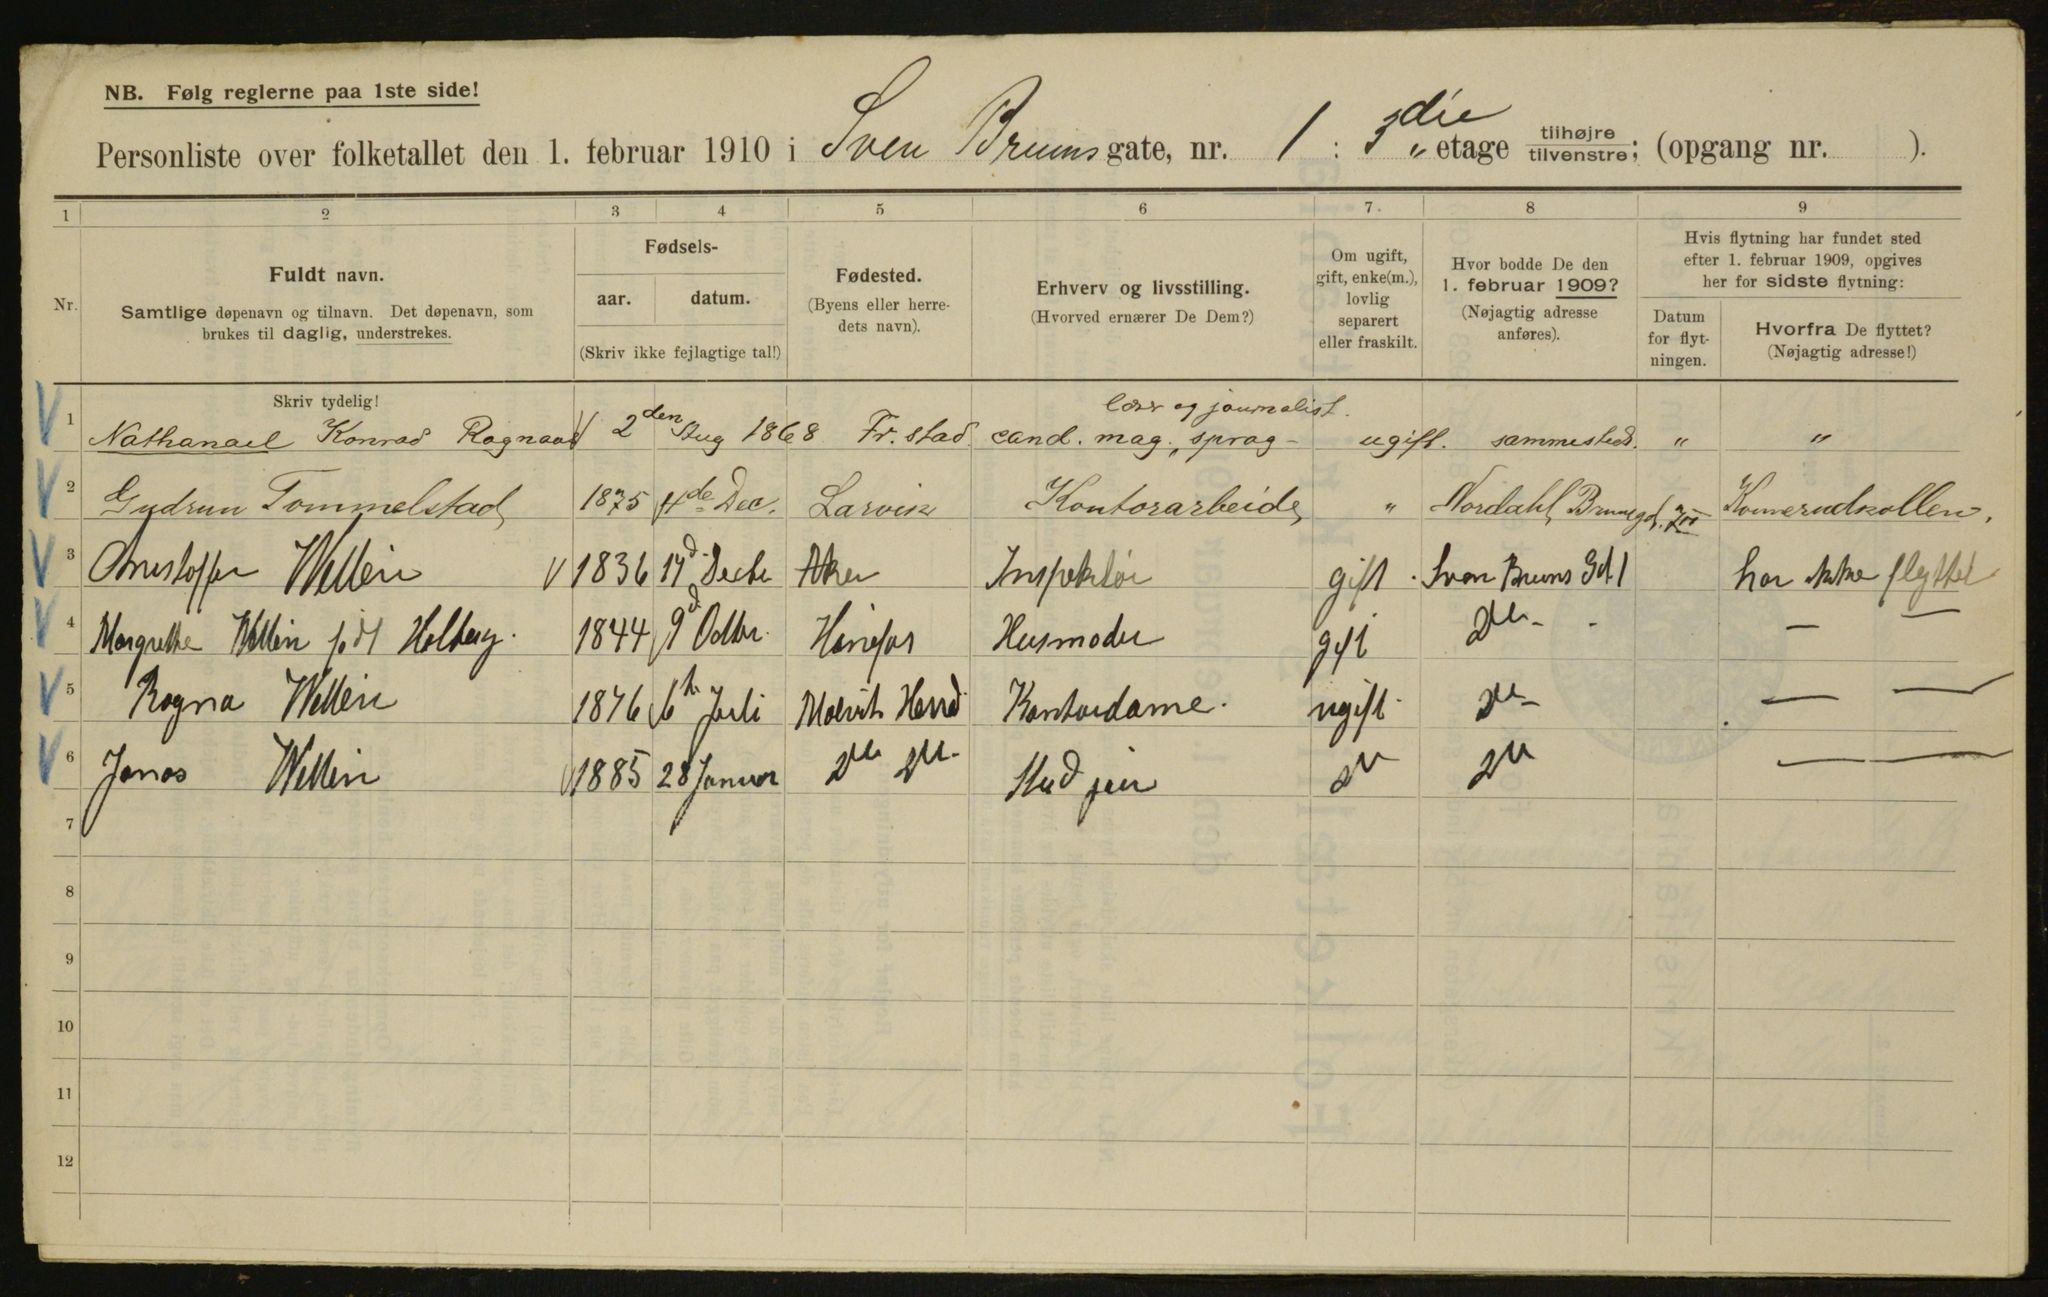 NB. Følg reglerne paa 1ste side!
Personliste over folketallet den 1. februar 1910 i Sven Bruuns gate, nr. 1 : 3die etage tilhøjre/tilvenstre; (opgang nr. ).
1 2 3 4 5 6 7 8 9
Nr.
Fuldt navn.
Samtlige døpenavn og tilnavn. Det døpenavn, som
brukes til daglig, understrekes.
Fødsels-
aar. datum.
(Skriv ikke fejlagtige tal!)
Fødested.
(Byens eller herre-
dets navn).
Erhverv og livsstilling.
(Hvorved ernærer De Dem?)
Om ugift,
gift, enke(m.),
lovlig
separert
eller fraskilt.
Hvor bodde De den
1. februar 1909?
(Nøjagtig adresse
anføres).
Hvis flytning har fundet sted
efter 1. februar 1909, opgives
her for sidste flytning:
Datum
for flyt-
ningen.
Hvorfra De flyttet?
(Nøjagtig adresse!)
Skriv tydelig!
lærer og journalist.
1 Nathanael Konrad Rognaas 2den Aug 1868 Fr.stad cand. mag., sprog- ugift. sammesteds. " "
2 Gudrun Tommelstad 1875 4de Dec. Larvik Kontorarbeide " Nordahl Brunsgd. Konnerudkollen.
3 Christoffer Wellén 1836 17d Decbr Aker Inspektør gift Sven Bruns Gd 1 har ikke flyttet
4 Margrethe Wellén född Holberg. 1844 9d Octbr. Hønefos Husmoder gift Do - — —
5 Ragna Wellén 1876 6te Juli Modum Herred Kontordame. ugift Do - — —
6 Jonas Wellén 1885 28 Januar Do Do Stud jur Do Do — —
7
8
9
10
11
12